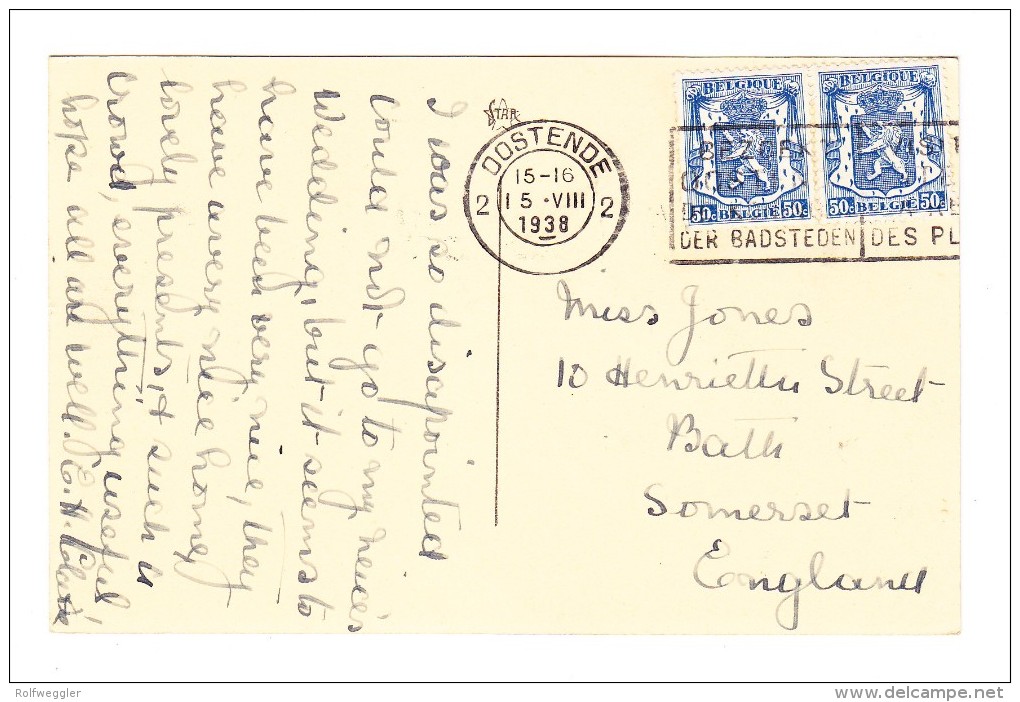 I was so disapointed
could not go to my neice's
Wedding, but it seems to
have been very nice, they
have a very nice home,
lovely presents, & such a
crowd, everything useful
hope all are well. E. H.
STAR
OOSTENDE
15-16
15 ·VIII
1938
2 2
BELGIQUE BELGIQUE
50c BELGIË 50c 50c BELGIË 50c
DER BADSTEDEN DES PL
Miss Jones
10 Henrietta Street
Bath
Somerset
England
Rolfweggler
delcampe.net